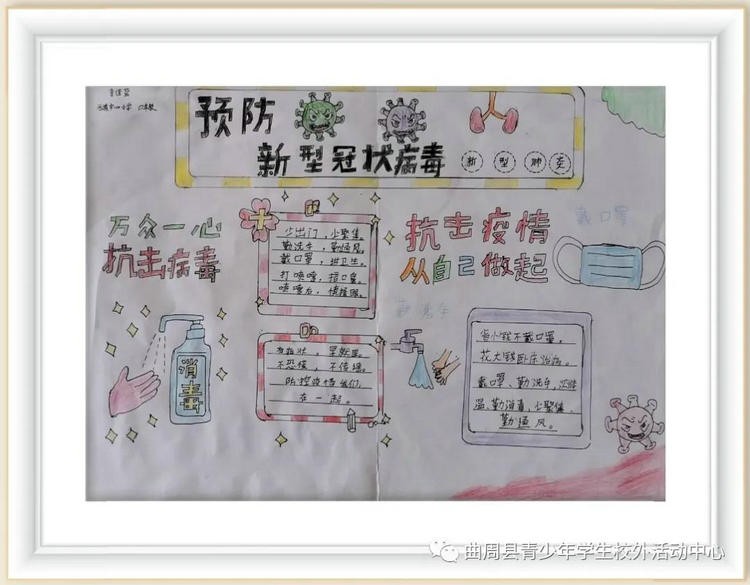 预防
新型冠状病毒
新 型 肺 炎
万众一心
抗击病毒
少出门，少聚集，
勤洗手，勤通风，
戴口罩，讲卫生。
打喷嚏，捂口罩，
喷嚏后，慎揉眼。
有症状，早就医。
不恐慌，不传谣。
防控疫情我们
在一起。
抗击疫情
从自己做起
戴口罩
勤洗手
消毒
省小钱不戴口罩，
花大钱卧床治病。
戴口罩、勤洗手、测体
温、勤消毒、少聚集、
勤通风。
曲周县青少年学生校外活动中心